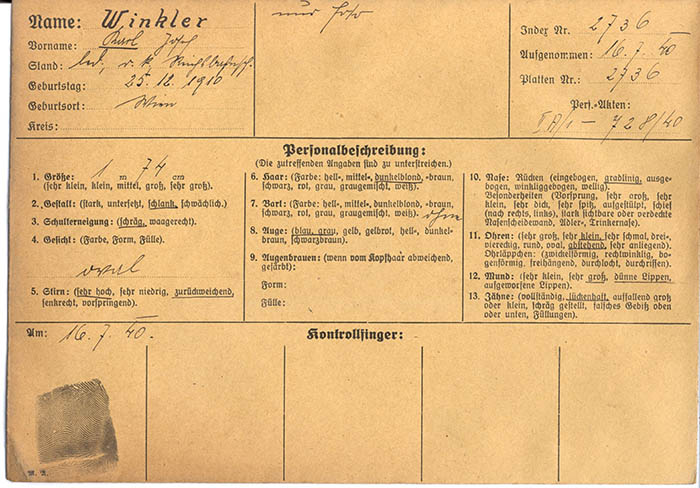 Name: Winkler
nur Foto
Vorname: Karl Josef
Stand: led., r. k., Reichsbahnsch.
Geburtstag: 25. 12. 1910
Geburtsort: Wien
Kreis:
Index Nr. 2736
Aufgenommen: 16. 7. 40
Platten Nr.: 2736
Pers.-Akten:
728/40
Personalbeschreibung:
(Die zutreffenden Angaben sind zu unterstreichen.)
1. Größe: 1 m 74 cm
(sehr klein, klein, mittel, groß, sehr groß).
2. Gestalt: (stark, untersetzt, schlank, schwächlich.)
3. Schulterneigung: (schräg, waagerecht.)
4. Gesicht: (Farbe, Form, Fülle).
oval
5. Stirn: (sehr hoch, sehr niedrig, zurückweichend,
senkrecht, vorspringend).
6. Haar: (Farbe: hell-, mittel-, dunkelblond, -braun,
schwarz, rot, grau, graugemischt, weiß).
7. Bart: (Farbe: hell-, mittel-, dunkelblond, -braun,
schwarz, rot, grau, graugemischt, weiß). ohne
8. Auge: (blau, grau, gelb, gelbrot, hell-, dunkel-
braun, schwarzbraun).
9. Augenbrauen: (wenn vom Kopfhaar abweichend,
gefärbt):
Form:
Fülle:
10. Nase: Rücken (eingebogen, gradlinig, ausge-
bogen, winkliggebogen, wellig).
Besonderheiten (Vorsprung, sehr groß, sehr
klein, sehr dick, sehr spitz, aufgestülpt, schief
(nach rechts, links), stark sichtbare oder verdeckte
Nasenscheidewand, Adler-, Trinkernase).
11. Ohren: (sehr groß, sehr klein, sehr schmal, drei-,
viereckig, rund, oval, abstehend, sehr anliegend).
Ohrläppchen: (zwickelförmig, rechtwinklig, bo-
genförmig, freihängend, durchlocht, durchrissen).
12. Mund: (sehr klein, sehr groß, dünne Lippen,
aufgeworfene Lippen).
13. Zähne: (vollständig, lückenhaft, auffallend groß
oder klein, schräg gestellt, falsches Gebiß oben
oder unten, Füllungen).
Am: 16. 7. 40.
Kontrollfinger: